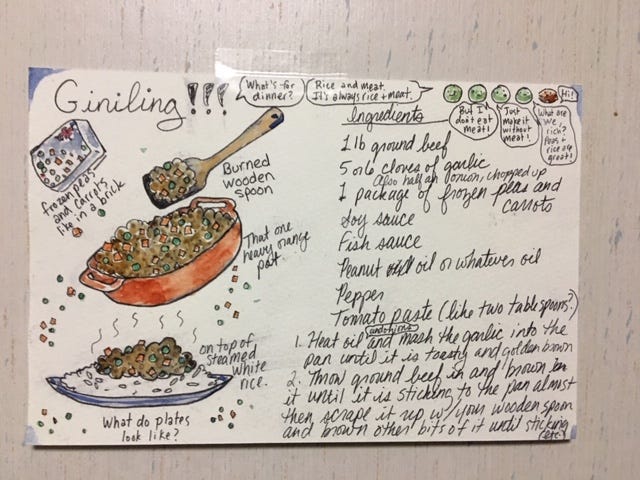 Giniling!!!
What's for
dinner?
Rice and meat.
It's always rice + meat.
But I
don't eat
meat!
Just
make it
without
meat!
What are
we,
rich?
Peas +
rice are
great!
Hi!
frozen peas
and carrots
like in a brick
Burned
wooden
spoon
That one
heavy orange
pot
on top of
steamed
white
rice.
What do plates
look like?
Ingredients
1 lb ground beef
5 or 6 cloves of garlic
Also half an onion, chopped up
1 package of frozen peas and
carrots
Soy sauce
Fish sauce
Peanut oil or whatever oil
Pepper
Tomato paste (like two tablespoons?)
1. Heat oil and mash the garlic into the
and onions
pan until it is toasty and golden brown
2. Throw ground beef in and brown
it until it is sticking to the pan almost
then scrape it up w/ your wooden spoon
and brown other bits of it until sticking
(etc.)